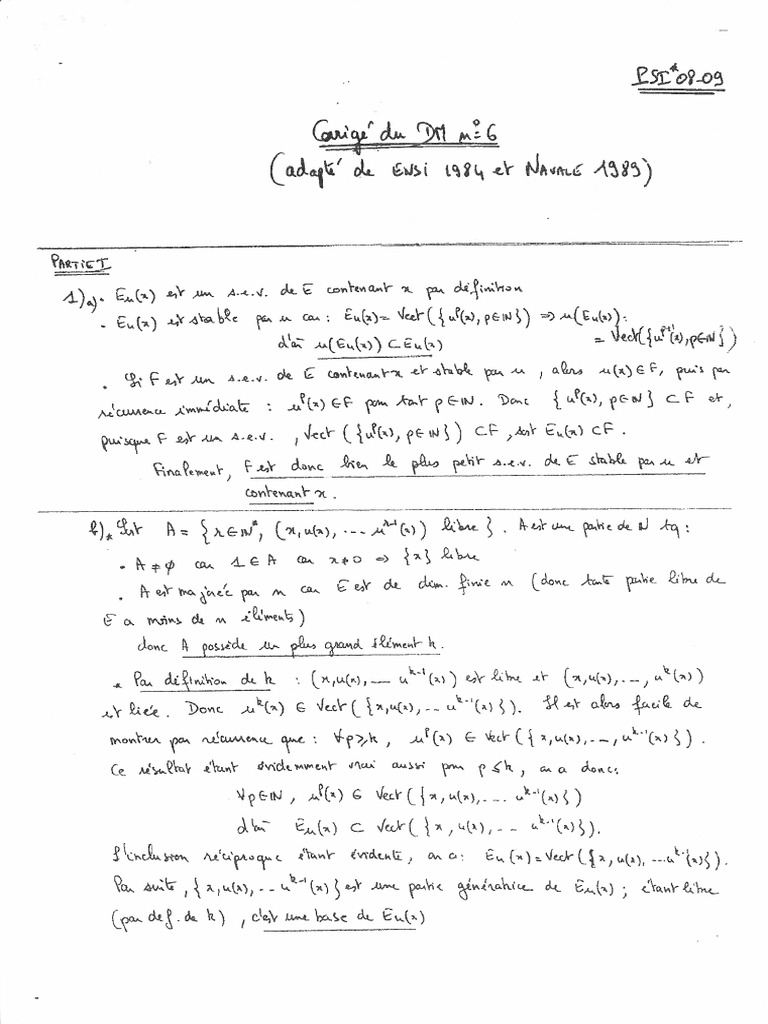 PSI*08-09
Corrigé du DM n°=6
(adapté de ENSI 1984 et NAVALE 1989)
PARTIE I
1)a). Eu(x) est un s.e.v. de E contenant x par définition
. Eu(x) est stable par u car: Eu(x) = Vect({uᵖ(x), p∈ℕ}) ⇒ u(Eu(x)):
d'où u(Eu(x)) ⊂ Eu(x) = Vect({uᵖ⁺¹(x), p∈ℕ})
. Si F est un s.e.v. de E contenant x et stable par u, alors u(x)∈F, puis par
récurrence immédiate : uᵖ(x)∈F pour tout p∈ℕ. Donc {uᵖ(x), p∈ℕ} ⊂ F et,
puisque F est un s.e.v., Vect({uᵖ(x), p∈ℕ}) ⊂ F, soit Eu(x) ⊂ F.
Finalement, F est donc bien le plus petit s.e.v. de E stable par u et
contenant x.
b)* Soit A = {r∈ℕ*, (x, u(x), ... uʳ⁻¹(x)) libre}. A est une partie de ℕ tq:
. A ≠ ∅ car 1 ∈ A car x≠0 ⇒ {x} libre
. A est majorée par n car E est de dim. finie n (donc toute partie libre de
E a moins de n éléments)
donc A possède un plus grand élément k.
* Par définition de k : (x, u(x), ... uᵏ⁻¹(x)) est libre et (x, u(x), ..., uᵏ(x))
est liée. Donc uᵏ(x) ∈ Vect({x, u(x), .. uᵏ⁻¹(x)}). Il est alors facile de
montrer par récurrence que: ∀p⩾k, uᵖ(x) ∈ Vect({x, u(x), ..., uᵏ⁻¹(x)}).
Ce résultat étant évidemment vrai aussi pour p⩽k, on a donc:
∀p∈ℕ, uᵖ(x) ∈ Vect({x, u(x), ... uᵏ⁻¹(x)})
d'où Eu(x) ⊂ Vect({x, u(x), .. uᵏ⁻¹(x)}).
L'inclusion réciproque étant évidente, on a: Eu(x) = Vect({x, u(x), ... uᵏ⁻¹(x)}).
Par suite, {x, u(x), .. uᵏ⁻¹(x)} est une partie génératrice de Eu(x); étant libre
(par def. de k), c'est une base de Eu(x)